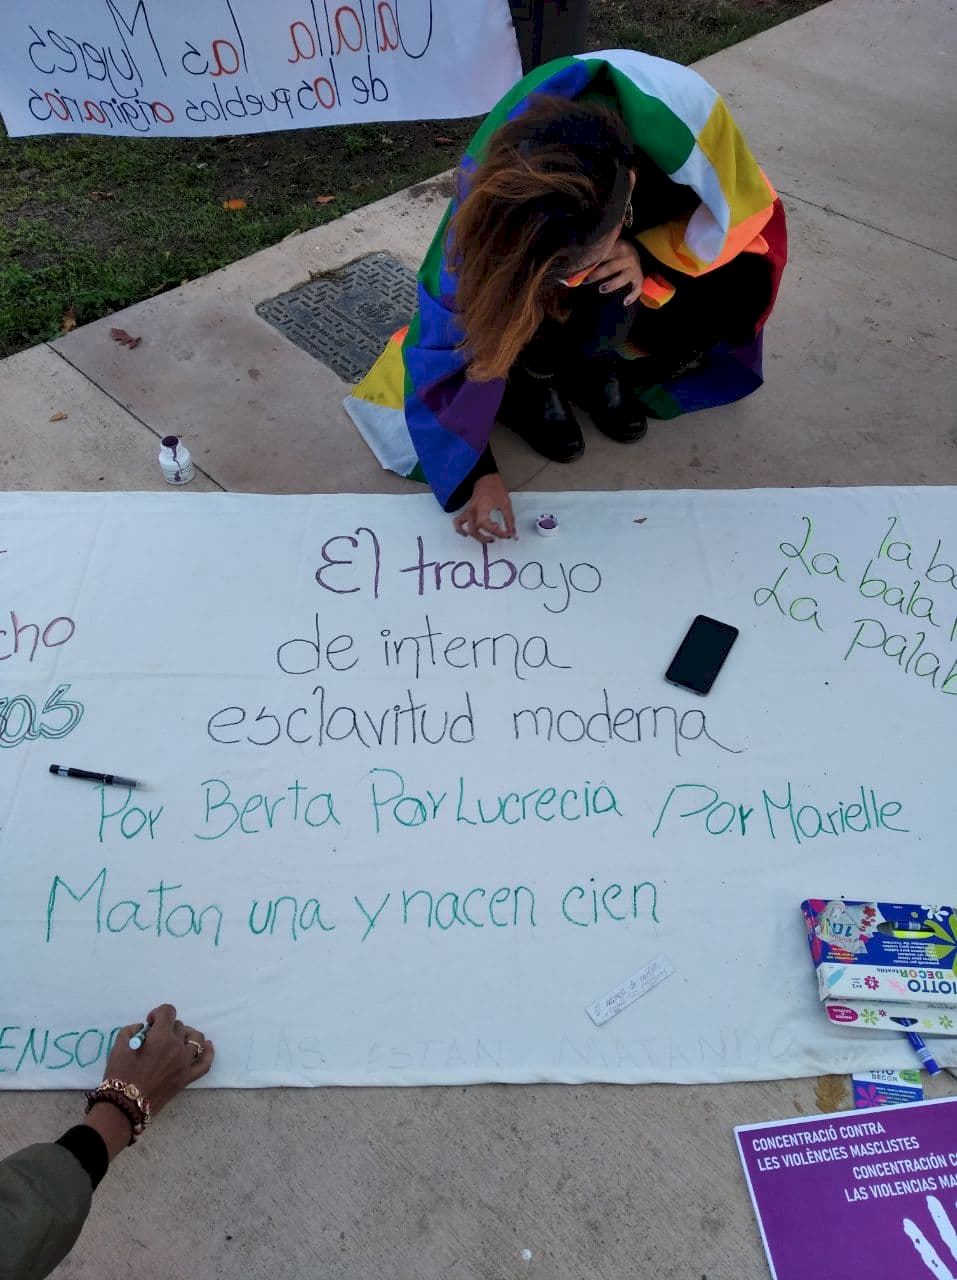 las Mujeres
de los pueblos originarios
El trabajo
de interna
esclavitud moderna
cho
La la b
La bala
La palab
Por Berta Por Lucrecia Por Marielle
Matan una y nacen cien
ENSOR LAS ESTAN MATANDO
GIOTTO
DECOR textil
10
DECOR
CONCENTRACIÓ CONTRA
LES VIOLÈNCIES MASCLISTES
CONCENTRACIÓN C
LAS VIOLENCIAS MA